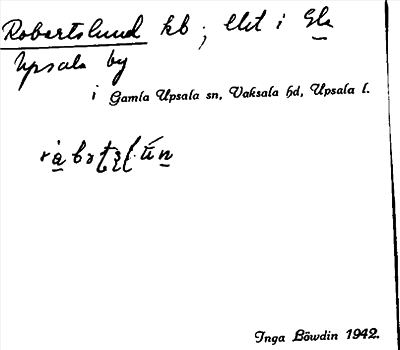 Robertslund kb ; lht i Gla
Upsala by
i Gamla Upsala sn, Vaksala hd, Upsala l.
Inga Löwdin 1942.